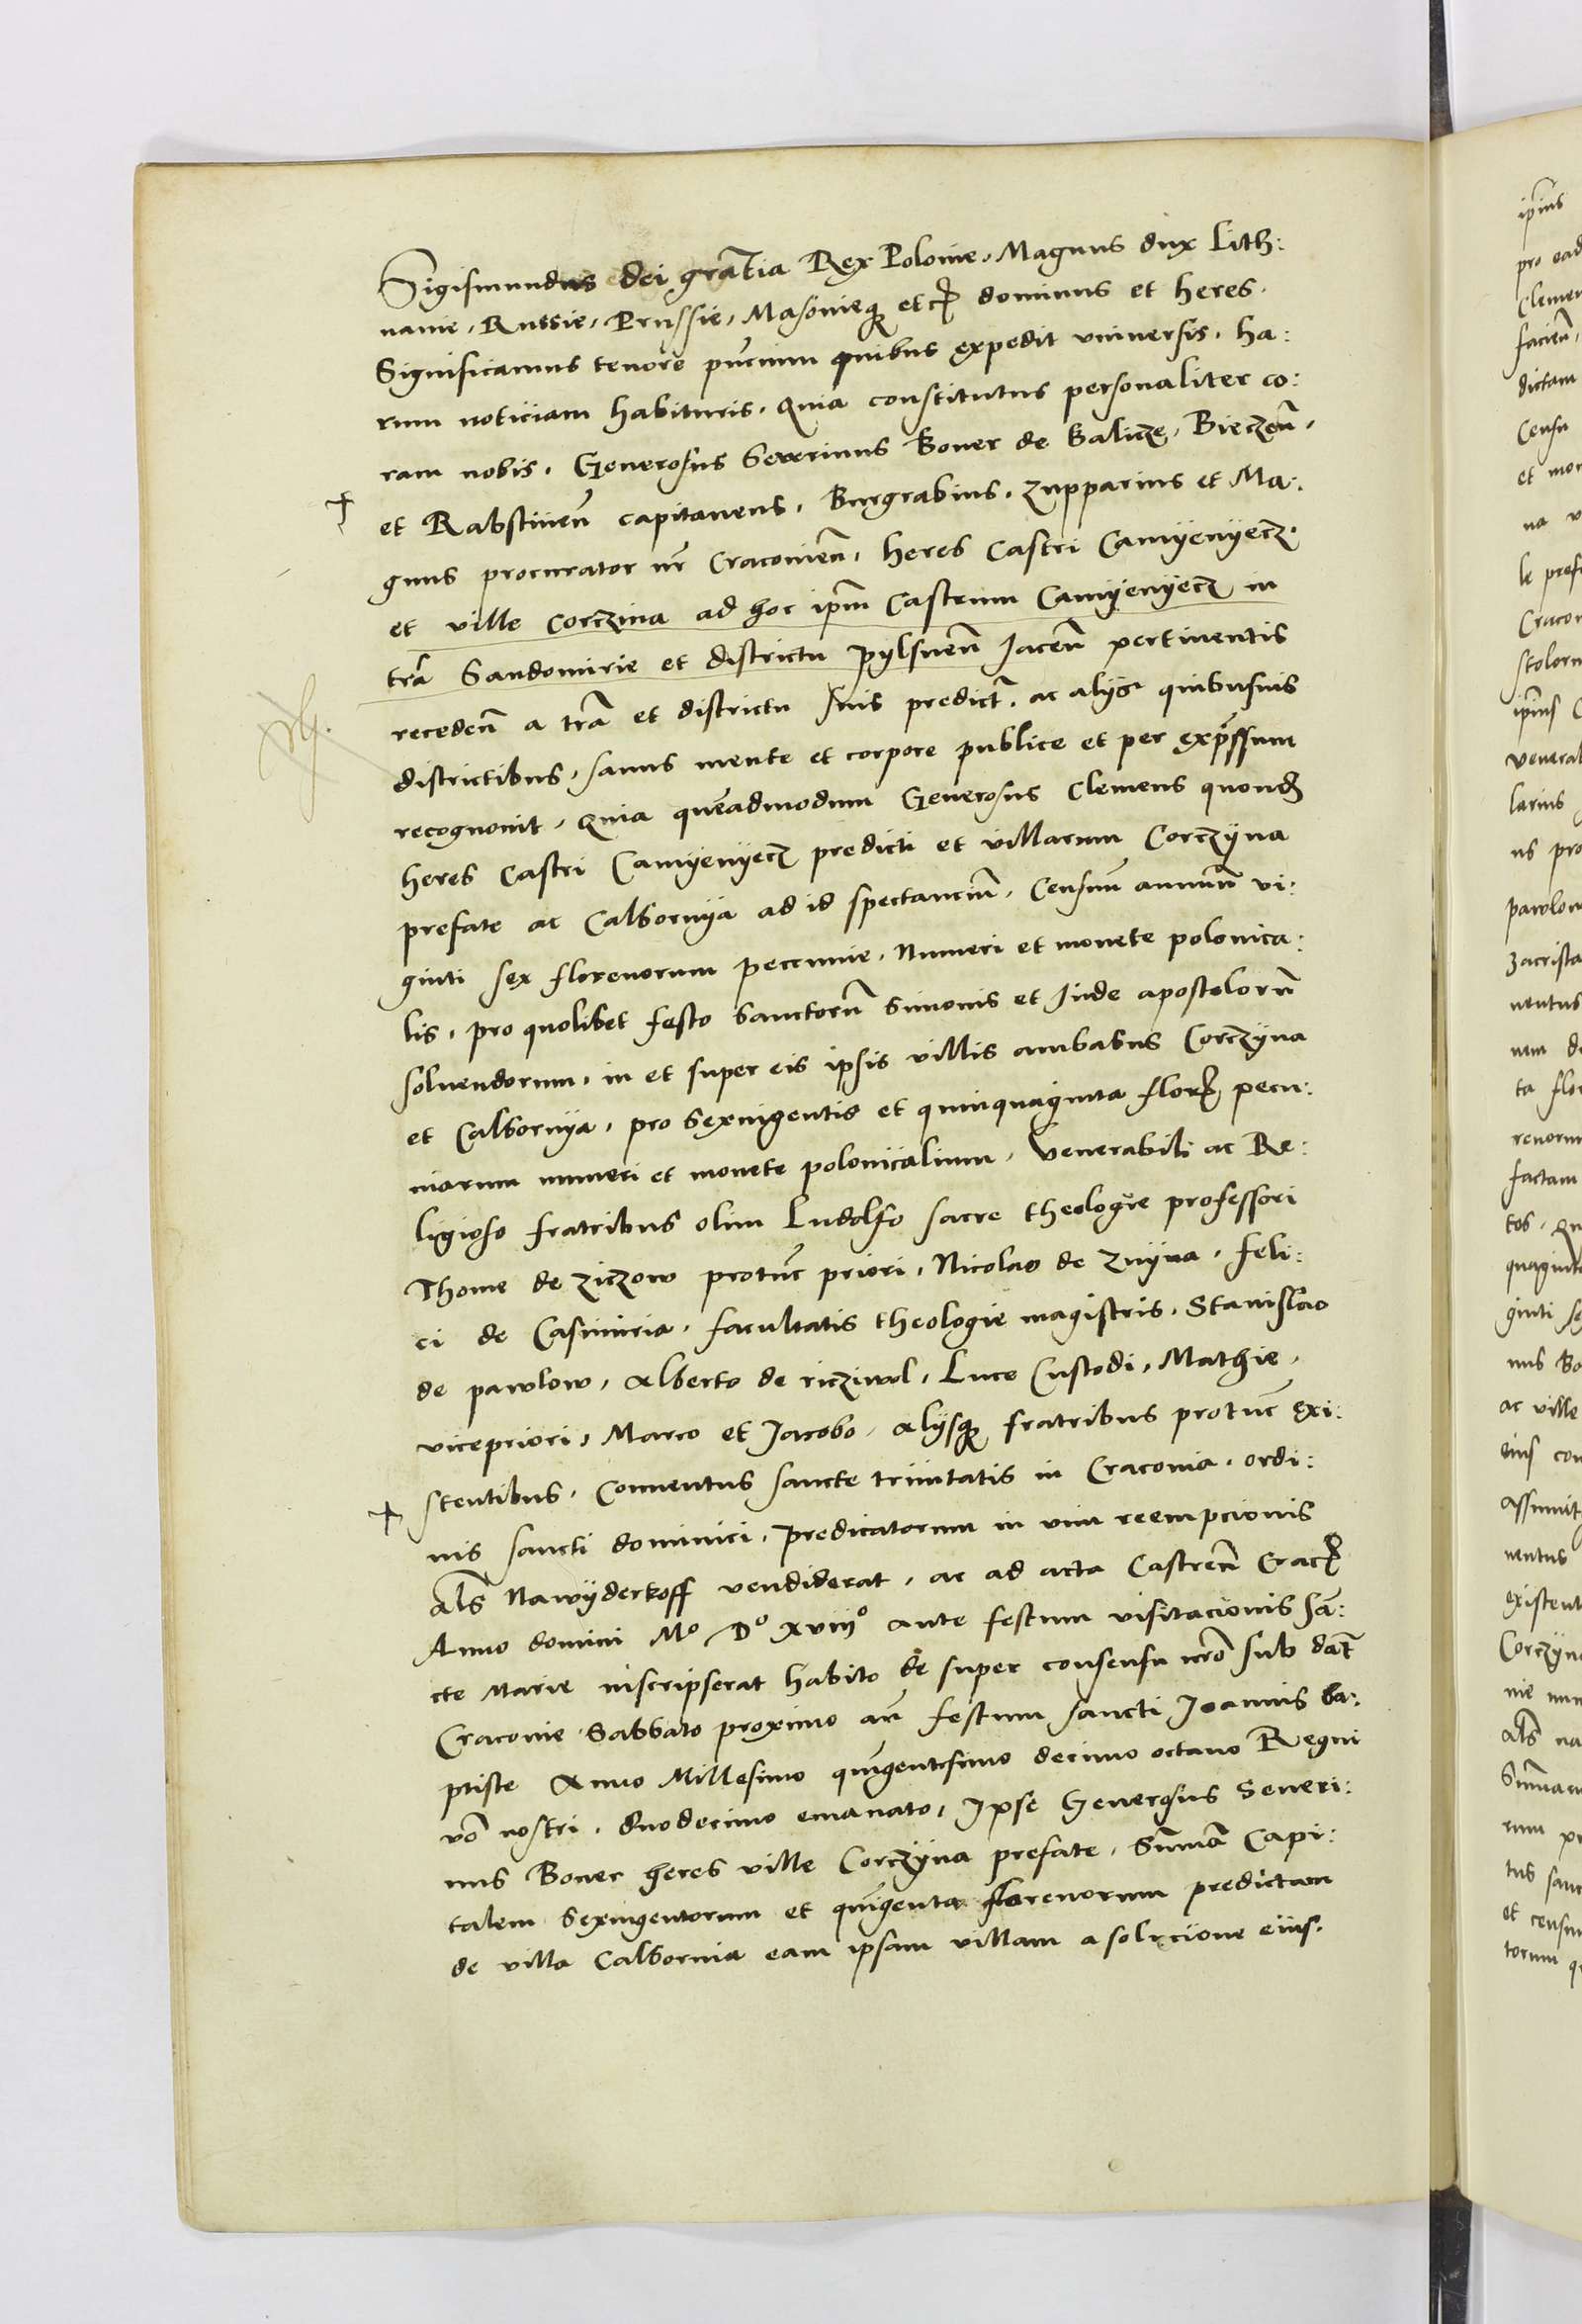 Sigismundus dei gratia Rex Polonie, Magnus dux Lith:
uanie, Russie, Prussie, Masouieq; etc̃ dominus et heres.
Significamus tenore pñcium quibus expedit vniuersis, ha:
rum noticiam habituris. Quia constitutus personaliter co:
ram nobis. Generosus Seuerinus Boner de Balicze, Bieczeñ,
et Rabstineñ capitaneus, Burgrabius, zupparius et Ma:
gnus procurator nr̃ Cracouieñ, heres Castri Camÿenÿecz
et ville Corczina ad hoc ip̃m Castrum Camÿenÿecz in
tr̃a Sandomirie et districtu Pylsneñ Jaceñ pertinentis
recedeñ a tr̃a et districtu suis predict̃ ac alÿs quibusuis
districtibus, sanus mente et corpore publice et per exp̃ssum
recognouit, Quia queadmodum Generosus Clemens quond̃
heres Castri Camÿenÿecz predicti et villarum Corczÿna
prefate ac Calbornÿa ad id spectanciũ, Censuũ annuũ vi:
ginti sex florenorum peccunie, Numeri et monete polonica:
lis, pro quolibet festo Sanctorũ Simonis et Jude apostolorũ
soluendorum, in et super eis ipsis villis ambabus Corczÿna
et Calbornÿa, pro Sexingentis et quinquaginta flor̃ pecu:
niarum numeri et monete polonicalium, Venerabili ac Re:
ligioso fratribus olim Ludolfo sacre theologie professori
Thome de ziczow protũc priori, Nicolao de Znÿna, Feli:
ci de Casimiria, facultatis theologie magistris, Stanislao
de pawlow, Alberto de ricziwol, Luce Custodi, Mathie,
vicepriori, Marco et Jacobo, Alÿsq; fratribus protũc exi:
stentibus, Conuentus sancte trinitatis in Cracouia, ordi:
nis sancti dominici, predicatorum in vim reempcionis
al̃s Nawÿderkoff vendiderat, ac ad acta Castreñ Crac̃
Anno domini Mo Do xviiio ante festum visitacionis Sã:
cte Marie inscripserat habito de super consensu nr̃o sub dat̃
Cracouie Sabbato proximo añ festum sancti Joannis ba:
ptiste Anno Millesimo quĩgentesimo decimo octauo Regni
vo nostri, duodecimo emanato, Ipse Generosus Seueri:
nus Boner heres ville Corczÿna prefate, Sum̃ã Capi:
talem Sexingentorum et quĩgenta florenorum predictam
de villa Calbornia eam ipsam villam a solucione eius.